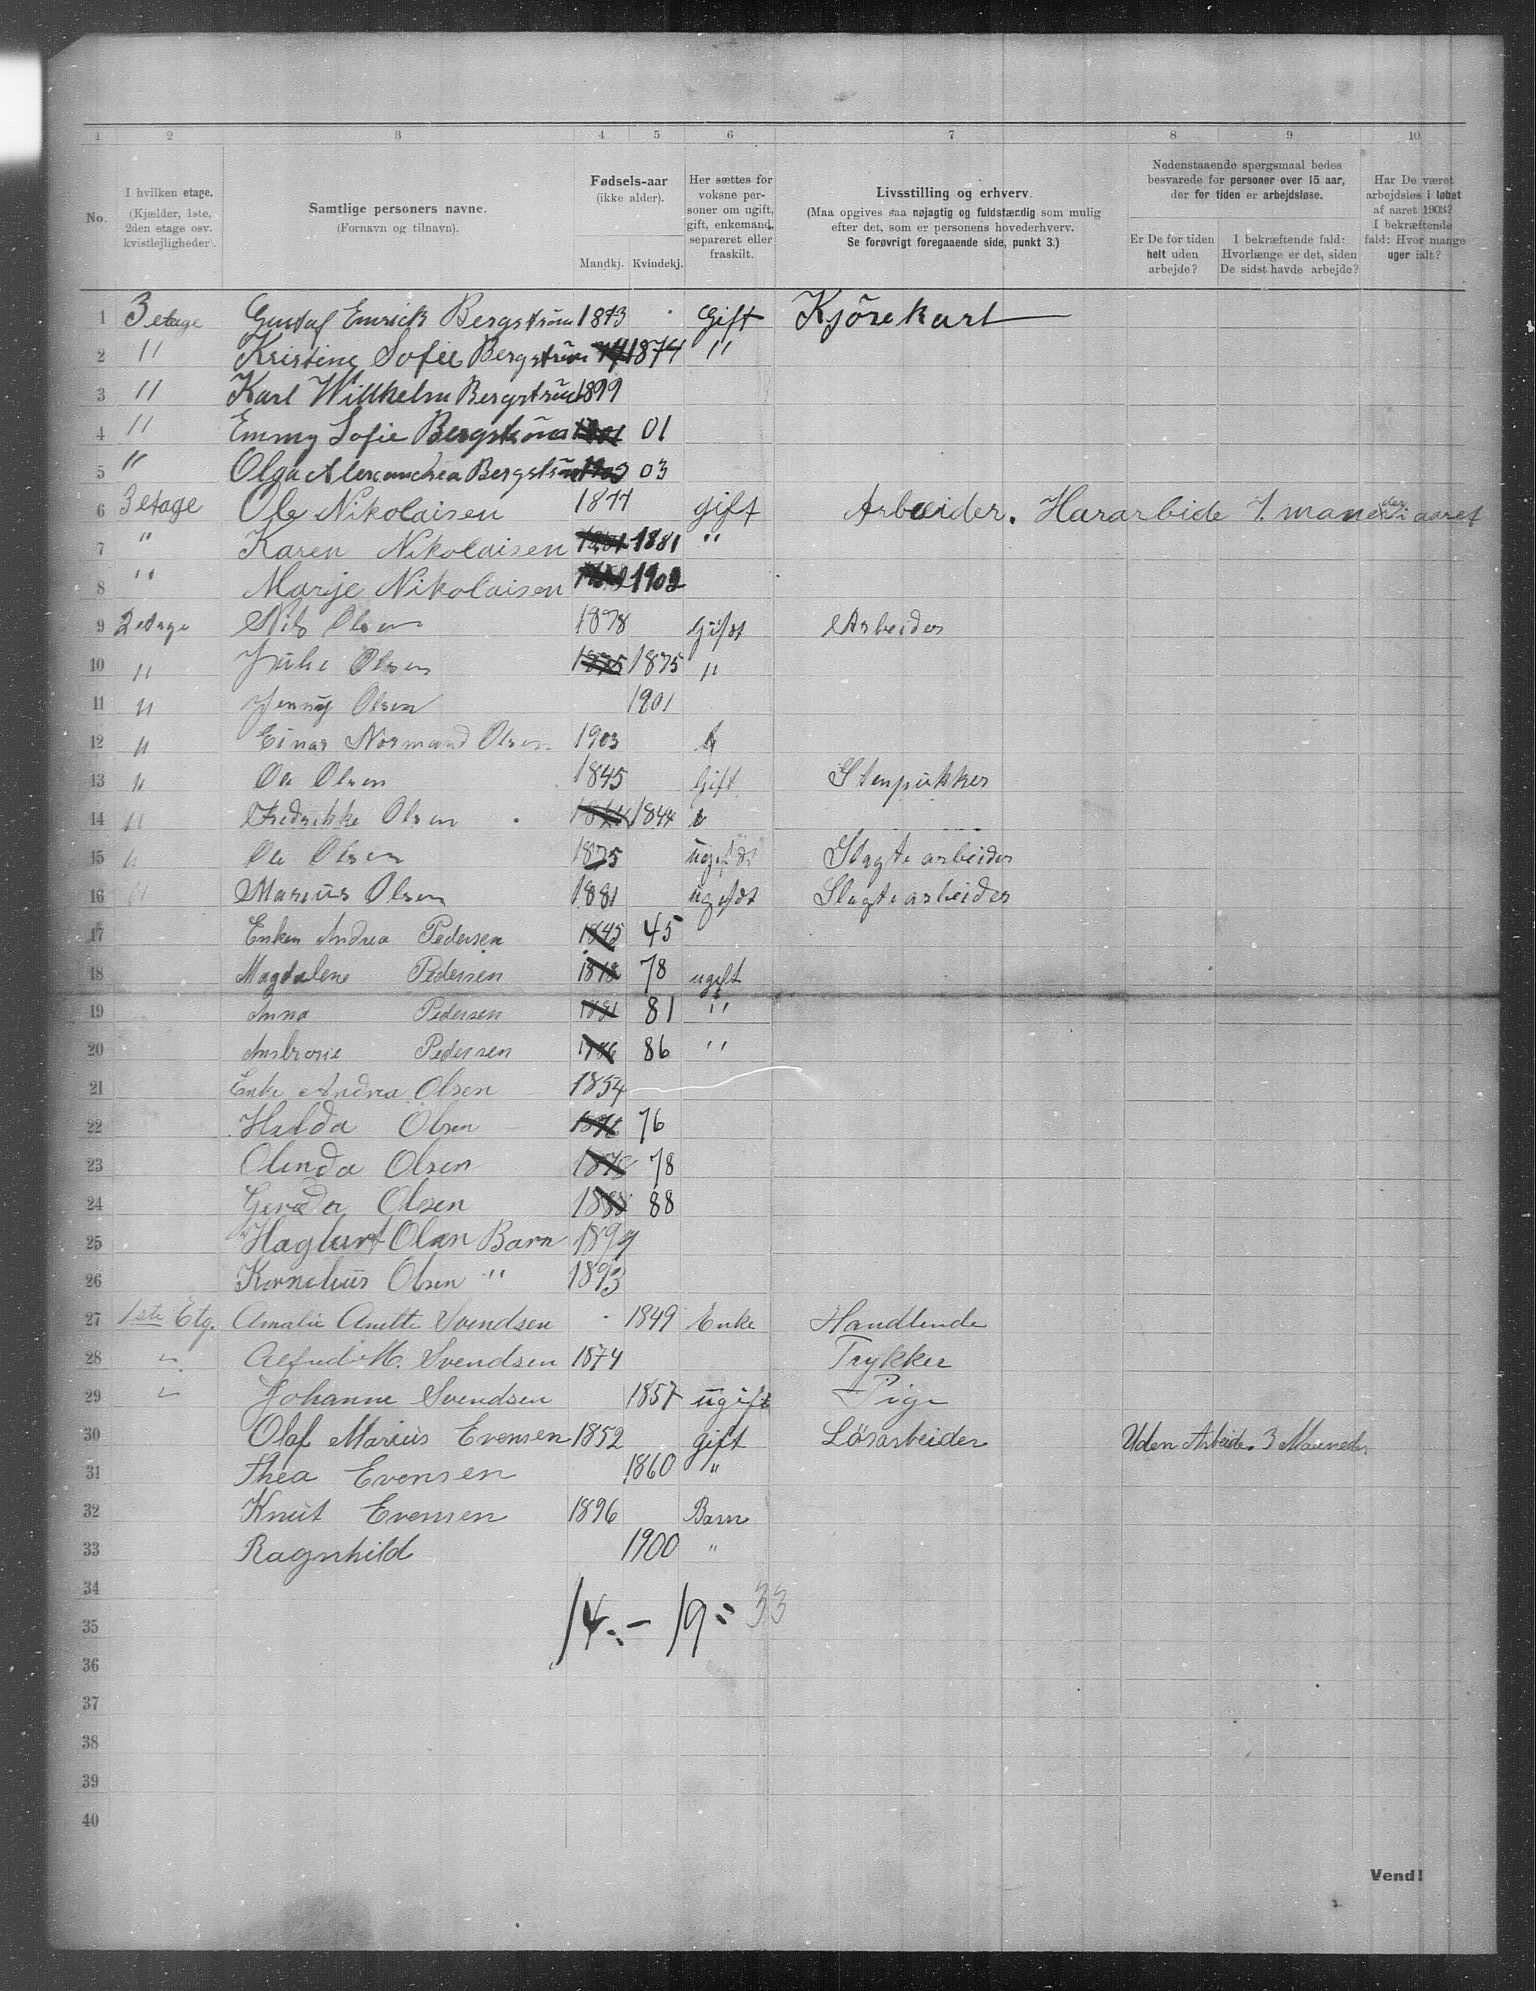 1 2 3 4 5 6 7 8 9 10
No.
I hvilken etage. (Kjælder, 1ste, 2den etage osv. kvistlejligheder).
Samtlige personers navne. (Fornavn og tilnavn).
Fødsels-aar (ikke alder).
Mandkj. Kvindekj.
Her sættes for voksne personer om ugift, gift, enkemand, separeret eller fraskilt.
Livsstilling og erhverv. (Maa opgives saa nøjagtig og fuldstærdig som mulig efter det, som er personens hovederhverv. Se forøvrigt foregaaende side, punkt 3.)
Nedenstaaende spørgsmaal bedes besvarede for personer over 15 aar, der for tiden er arbejdsløse.
Er De for tiden helt uden arbejde?
I bekræftende fald: Hvorlænge er det, siden De sidst havde arbejde?
Har De været arbejdsløs i løbet af aaret 1903? I bekræftende fald: Hvor mange uger ialt?
1 3 etage Gustaf Emrick Bergström 1873 Gift Kjörekarl
2 " Kristine Sofie Bergström 1874 "
3 " Karl Willhelm Bergström 1899
4 " Emmy Sofie Bergström 1901 01
5 " Olga Alexandrea Bergström 1903 03
6 3 etage Ole Nikolaisen 1877 gift Arbeider. Hararbide 1. maneder i aaret
7 " Karen Nikolaisen 1881 "
8 " Marje Nikolaisen 1902
9 2 etage Nils Olsen 1878 Gift Arbeider
10 " Julie Olsen 1875 1875 "
11 " Jenny Olsen 1901
12 " Einar Normand Olsen 1903
13 " Ole Olsen 1845 Gift Stenpukker
14 " Fredrikke Olsen 1844 1844
15 " Ole Olsen 1875 ugift Slagtearbeider
16 " Marius Olsen 1881 ugift Slagtearbeider
17 Enken Andrea Pedersen 1845 45
18 Magdalene Pedersen 1878 78 ugift
19 Anna Pedersen 1881 81 "
20 Ambrosie Pedersen 1886 86 "
21 Enke Andrea Olsen 1854
22 Hulda Olsen 1876 76
23 Olinda Olsen 1878 78
24 Gerda Olsen 1888 88
25 Haglurt Olsen Barn 1899
26 Kornelius Olsen " 1893
27 1ste Etg. Amalie Anette Svendsen 1849 Enke Handlende
28 " Alfred M. Svendsen 1874 Trykker
29 " Johanne Svendsen 1857 ugift Pige
30 Olaf Marius Evensen 1852 gift Lösarbeider Uden Arbeide. 3 Maaneder
31 Thea Evensen 1860 "
32 Knut Evensen 1896 Barn
33 Ragnhild 1900 "
34
14 - 19 = 33
35
36
37
38
39
40
Vend!